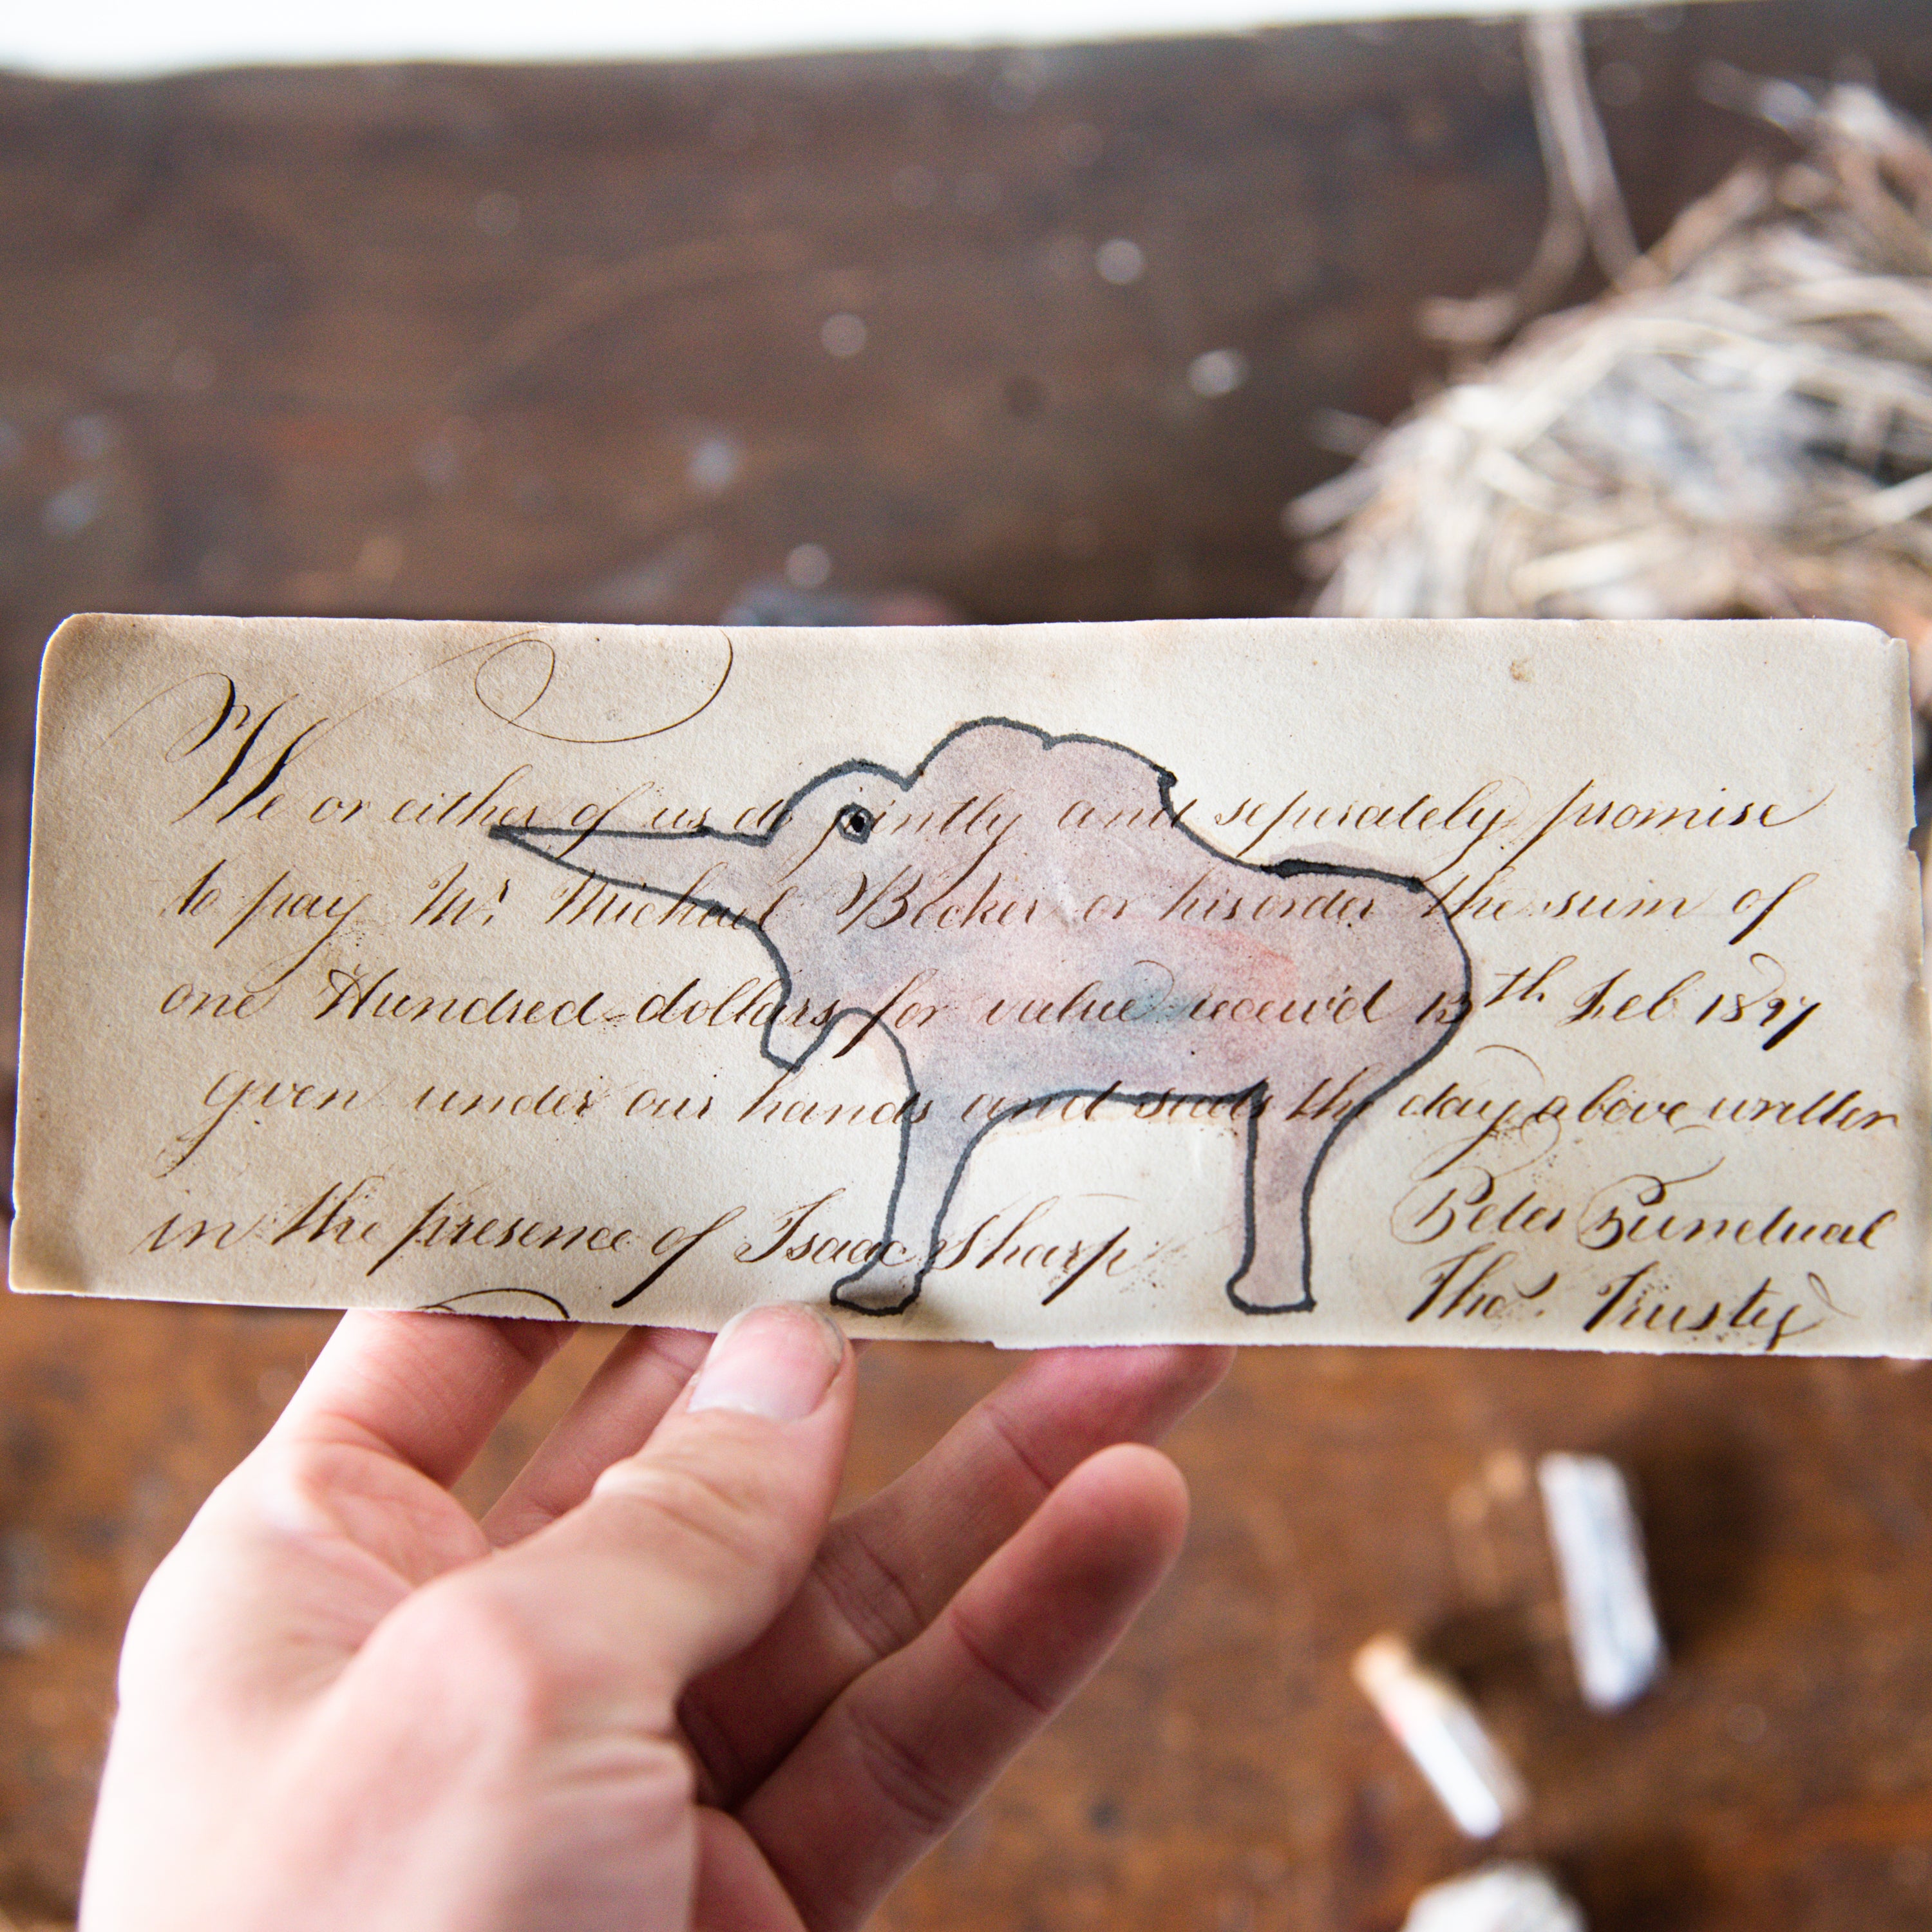 We or either of us do jointly and seperately promise
to pay Mr. Michael Becker or his order the sum of
one Hundred dollars for value receiv'd 13th Feb 1827
given under our hands and seals the day above written
in the presence of Isaac Sharp
Peter Punctual
Thos. Trusty